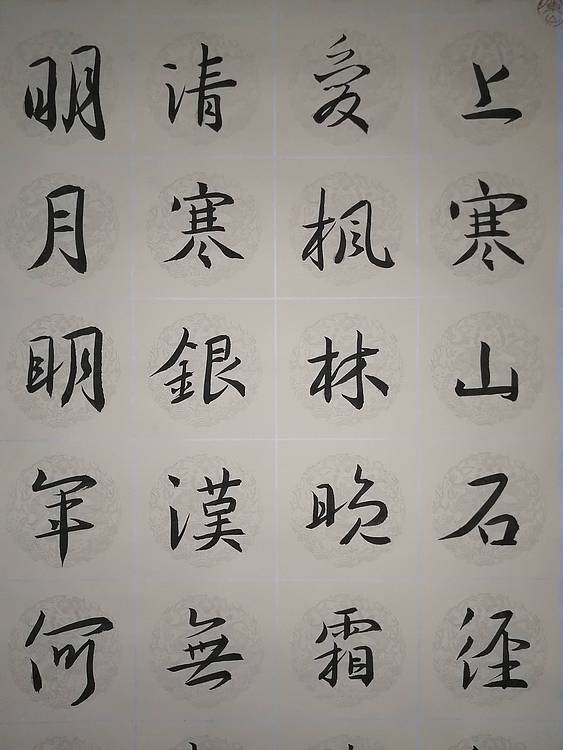 上寒山石徑
愛楓林晚霜
清寒銀漢無
明月明年何